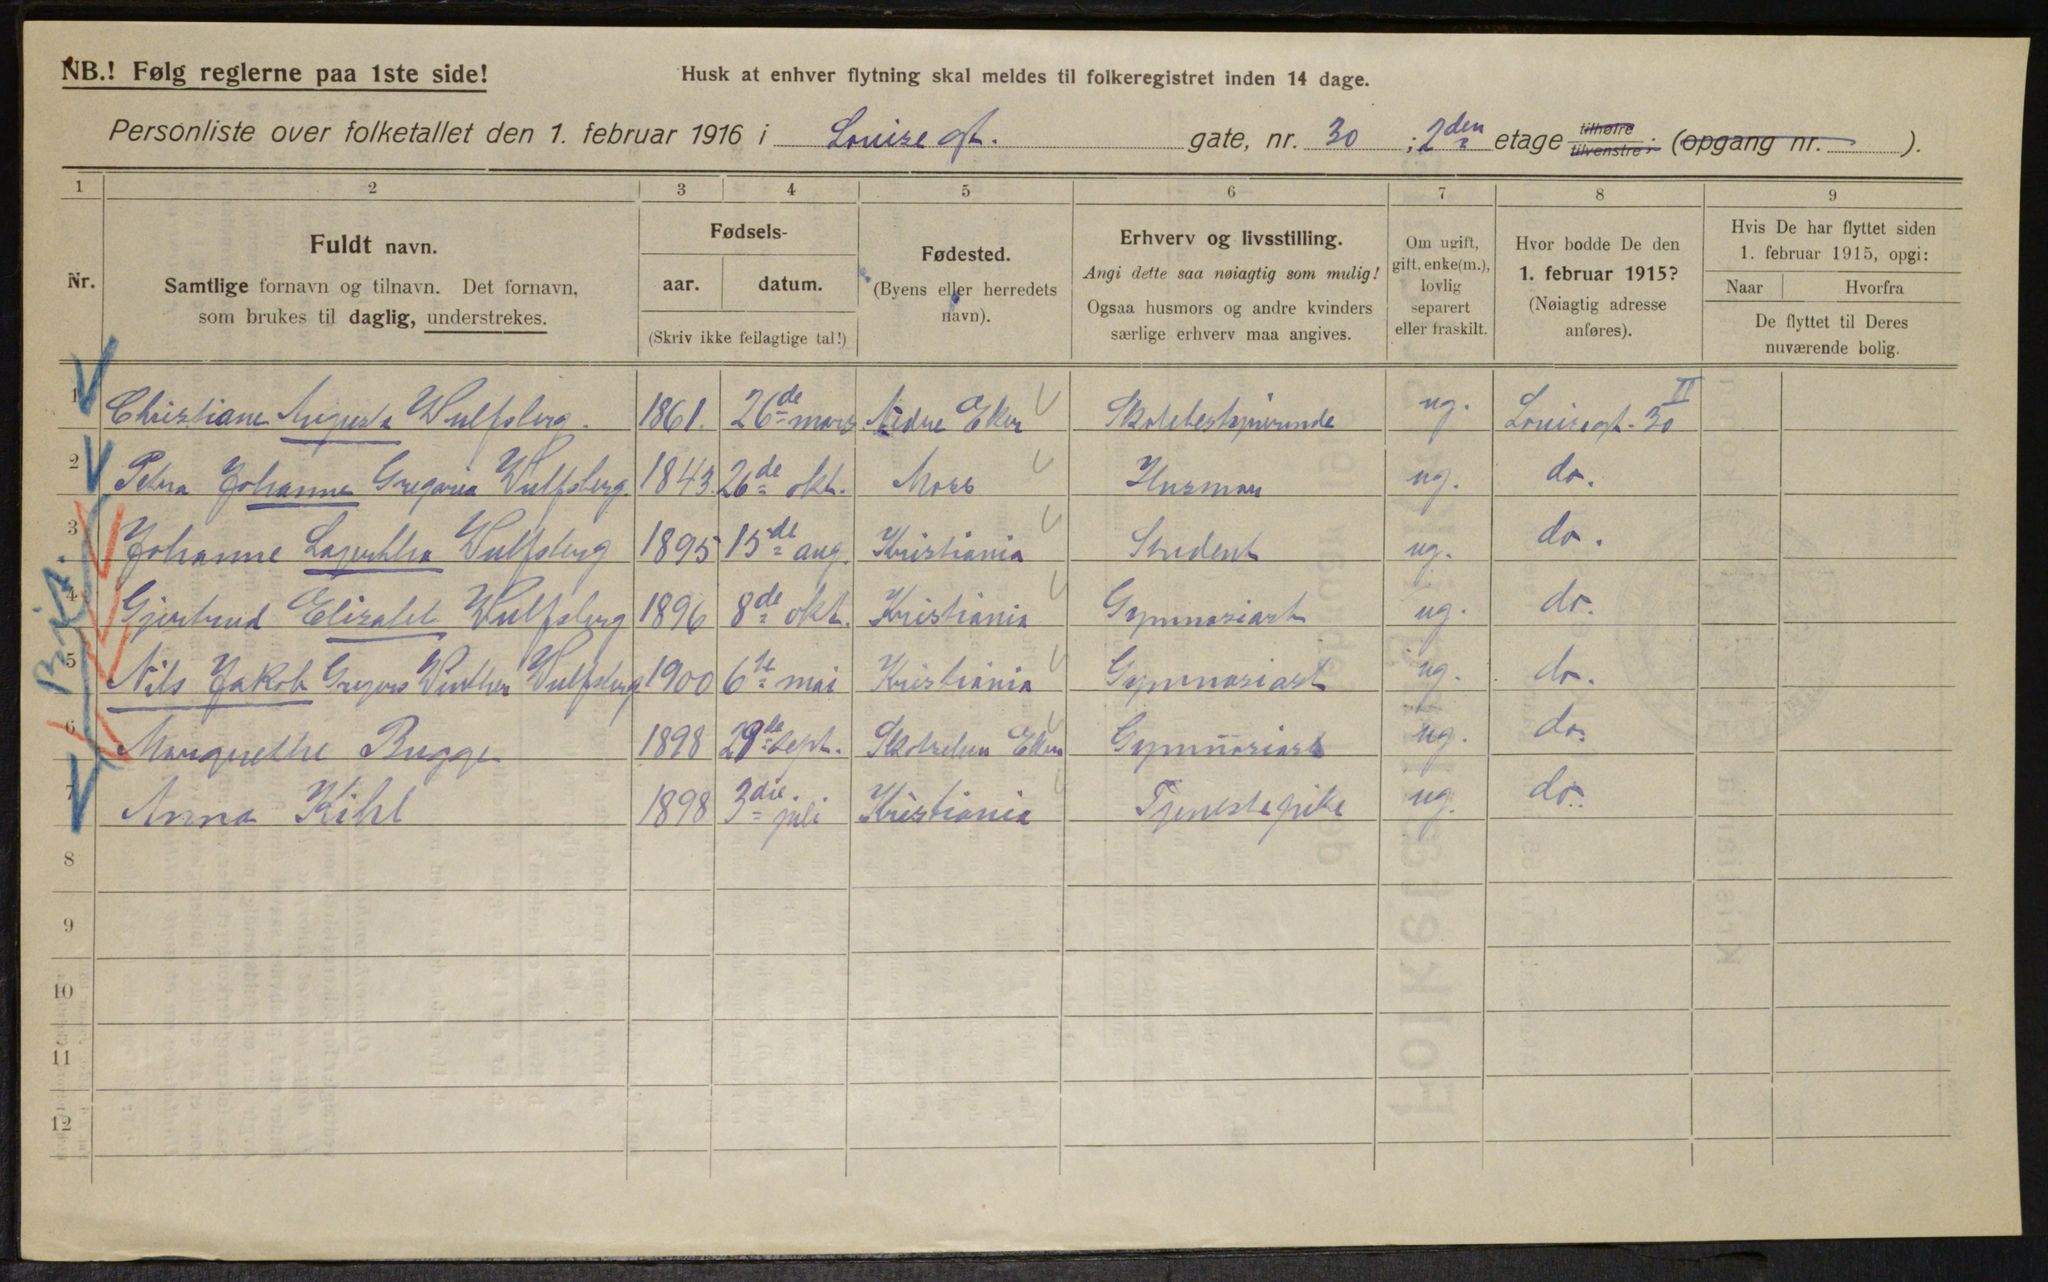 NB.! Følg reglerne paa 1ste side!
Husk at enhver flytning skal meldes til folkeregistret inden 14 dage.
Personliste over folketallet den 1. februar 1916 i Louise gt. gate, nr. 30 ; 2den etage tilhøire tilvenstre ; (opgang nr. ).
1 2 3 4 5 6 7 8 9
Nr.
Fuldt navn.
Samtlige fornavn og tilnavn. Det fornavn,
som brukes til daglig, understrekes.
Fødsels-
aar. datum.
(Skriv ikke feilagtige tal!)
Fødested.
(Byens eller herredets
navn).
Erhverv og livsstilling.
Angi dette saa nøiagtig som mulig!
Ogsaa husmors og andre kvinders
særlige erhverv maa angives.
Om ugift,
gift, enke(m.),
lovlig
separert
eller fraskilt.
Hvor bodde De den
1. februar 1915?
(Nøiagtig adresse
anføres).
Hvis De har flyttet siden
1. februar 1915, opgi:
Naar Hvorfra
De flyttet til Deres
nuværende bolig.
1 Christiane Augusta Wulfsberg. 1861. 26de mars Nedre Eker Skolebestyrerinde ug. Louisegt. 30 II
2 Petra Johanne Gregoria Wulfsberg. 1843. 26de okt. Moss Husmor ug. do.
3 Johanne Lagertha Wulfsberg 1895 15de aug. Kristiania Student ug. do.
4 Gjertrud Elisabet Wulfsberg 1896 8de okt. Kristiania Gymnasiast ug. do.
5 Nils Jakob Gregers Winther Wulfsberg 1900 6te mai Kristiania Gymnasiast ug. do.
6 Margrethe Bugge 1898 29de sept. Skotselven Eker Gymnasiast ug. do.
7 Anna Kihl 1898 3die juli Kristiania Tjenestepike ug. do.
8
9
10
11
12